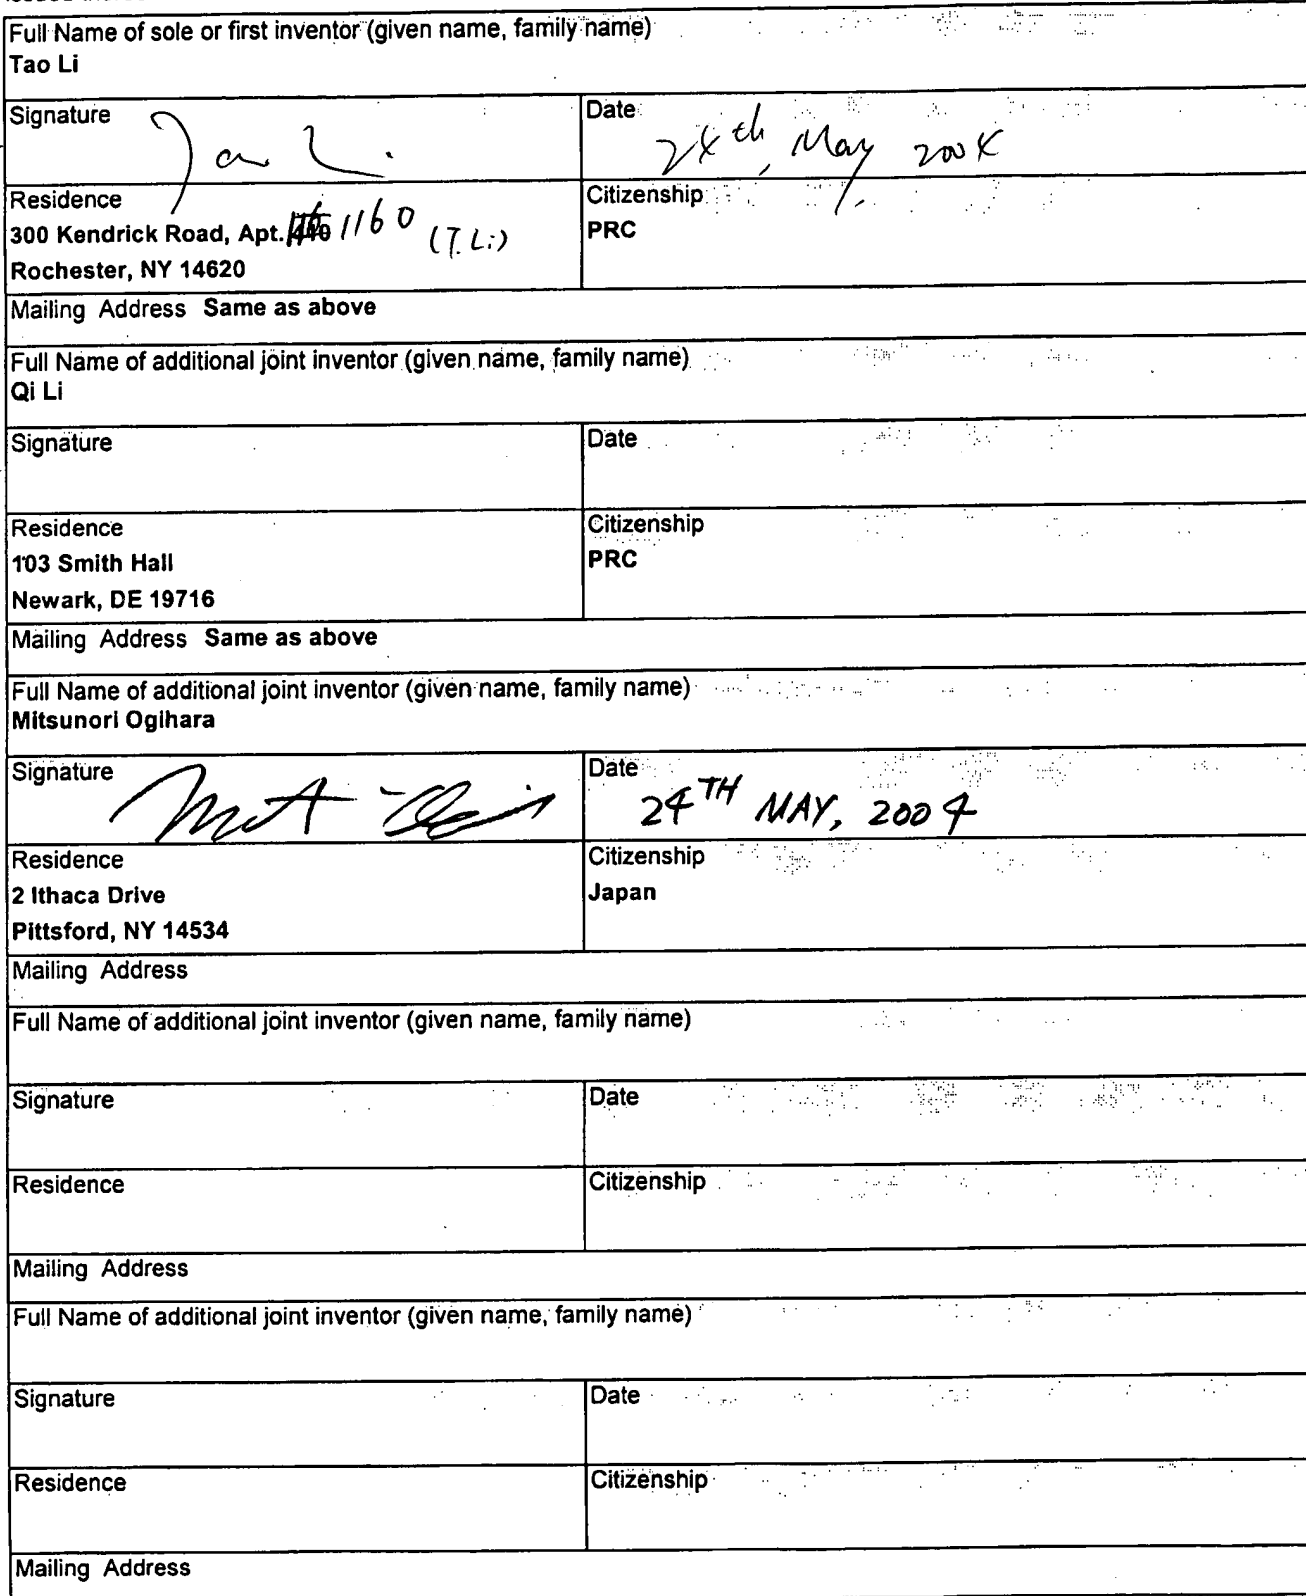 Full Name of sole or first inventor (given name, family name)
Tao Li
Signature Date
Tao Li. 24th, May, 2004
Residence Citizenship
300 Kendrick Road, Apt. 1160 (T. Li) PRC
Rochester, NY 14620
Mailing Address Same as above
Full Name of additional joint inventor (given name, family name)
Qi Li
Signature Date
Residence Citizenship
103 Smith Hall PRC
Newark, DE 19716
Mailing Address Same as above
Full Name of additional joint inventor (given name, family name)
Mitsunori Ogihara
Signature Date
24TH MAY, 2004
Residence Citizenship
2 Ithaca Drive Japan
Pittsford, NY 14534
Mailing Address
Full Name of additional joint inventor (given name, family name)
Signature Date
Residence Citizenship
Mailing Address
Full Name of additional joint inventor (given name, family name)
Signature Date
Residence Citizenship
Mailing Address